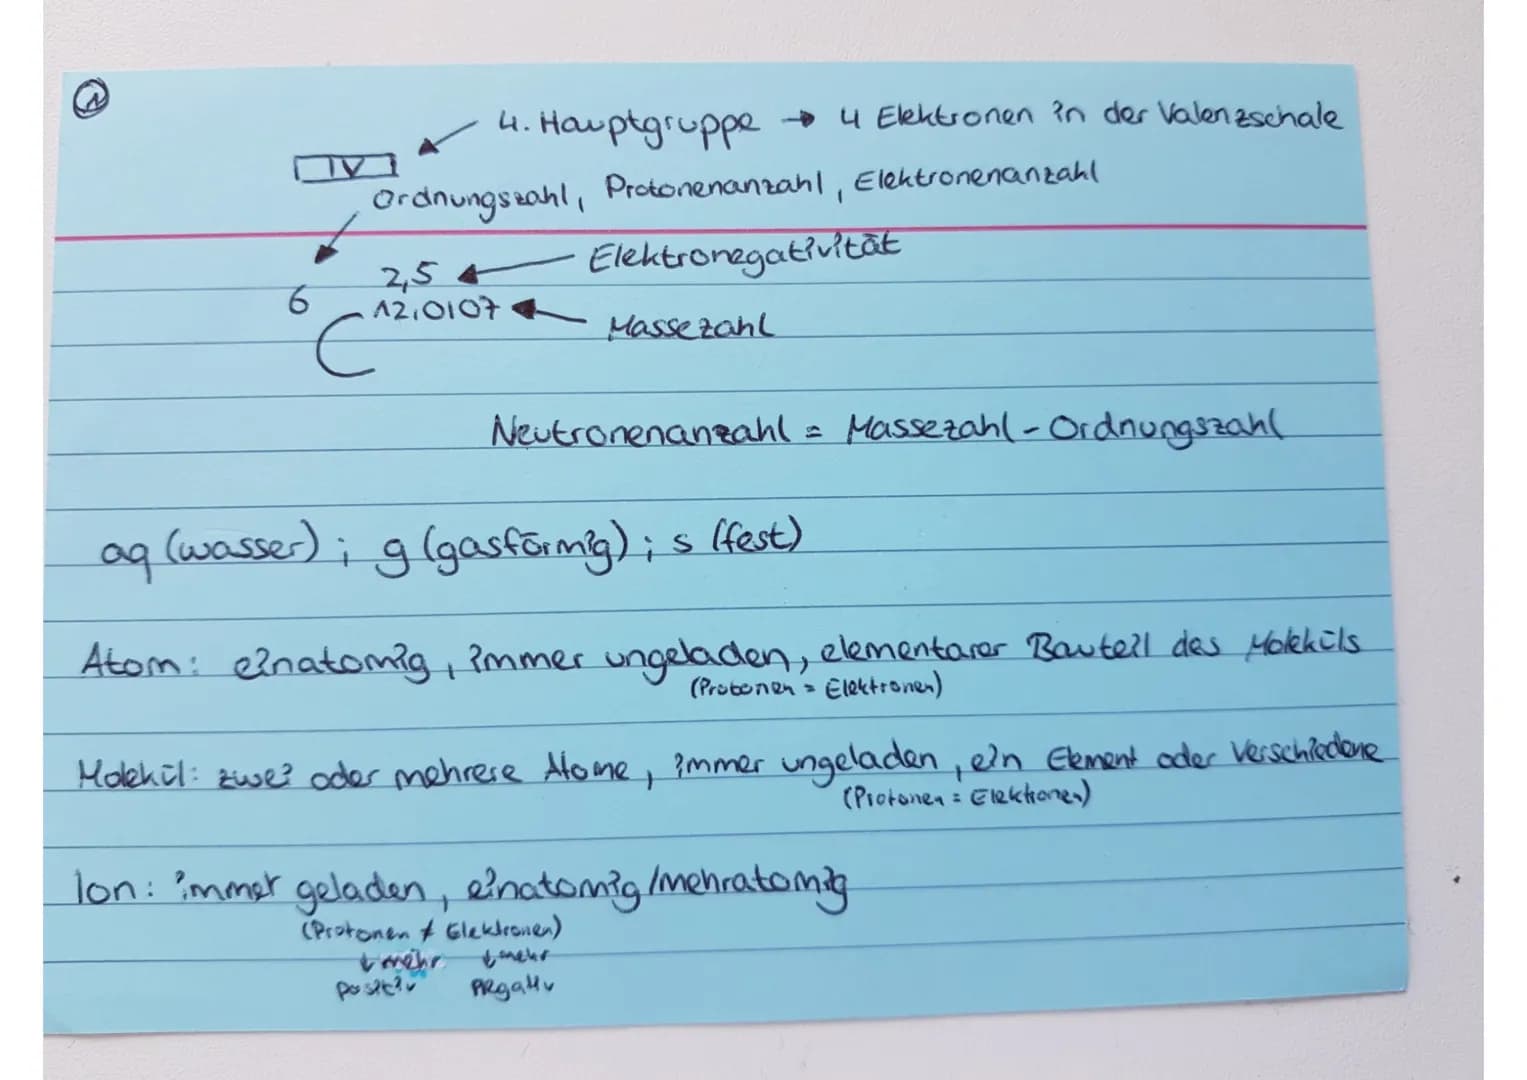 1
4. Hauptgruppe → 4 Elektronen in der Valenzschale
IV
Ordnungszahl, Protonenanzahl, Elektronenanzahl
2,5 Elektronegativität
6 12,0107 Massezahl
C
Neutronenanzahl = Massezahl - Ordnungszahl
aq (wasser); g (gasförmig); s (fest)
Atom: einatomig, immer ungeladen, elementarer Bauteil des Moleküls
(Protonen = Elektronen)
Molekül: zwei oder mehrere Atome, immer ungeladen, ein Element oder Verschiedene
(Protonen = Elektronen)
Ion: immer geladen, einatomig/mehratomig
(Protonen ≠ Elektronen)
↓ mehr ↓ mehr
positiv negativ